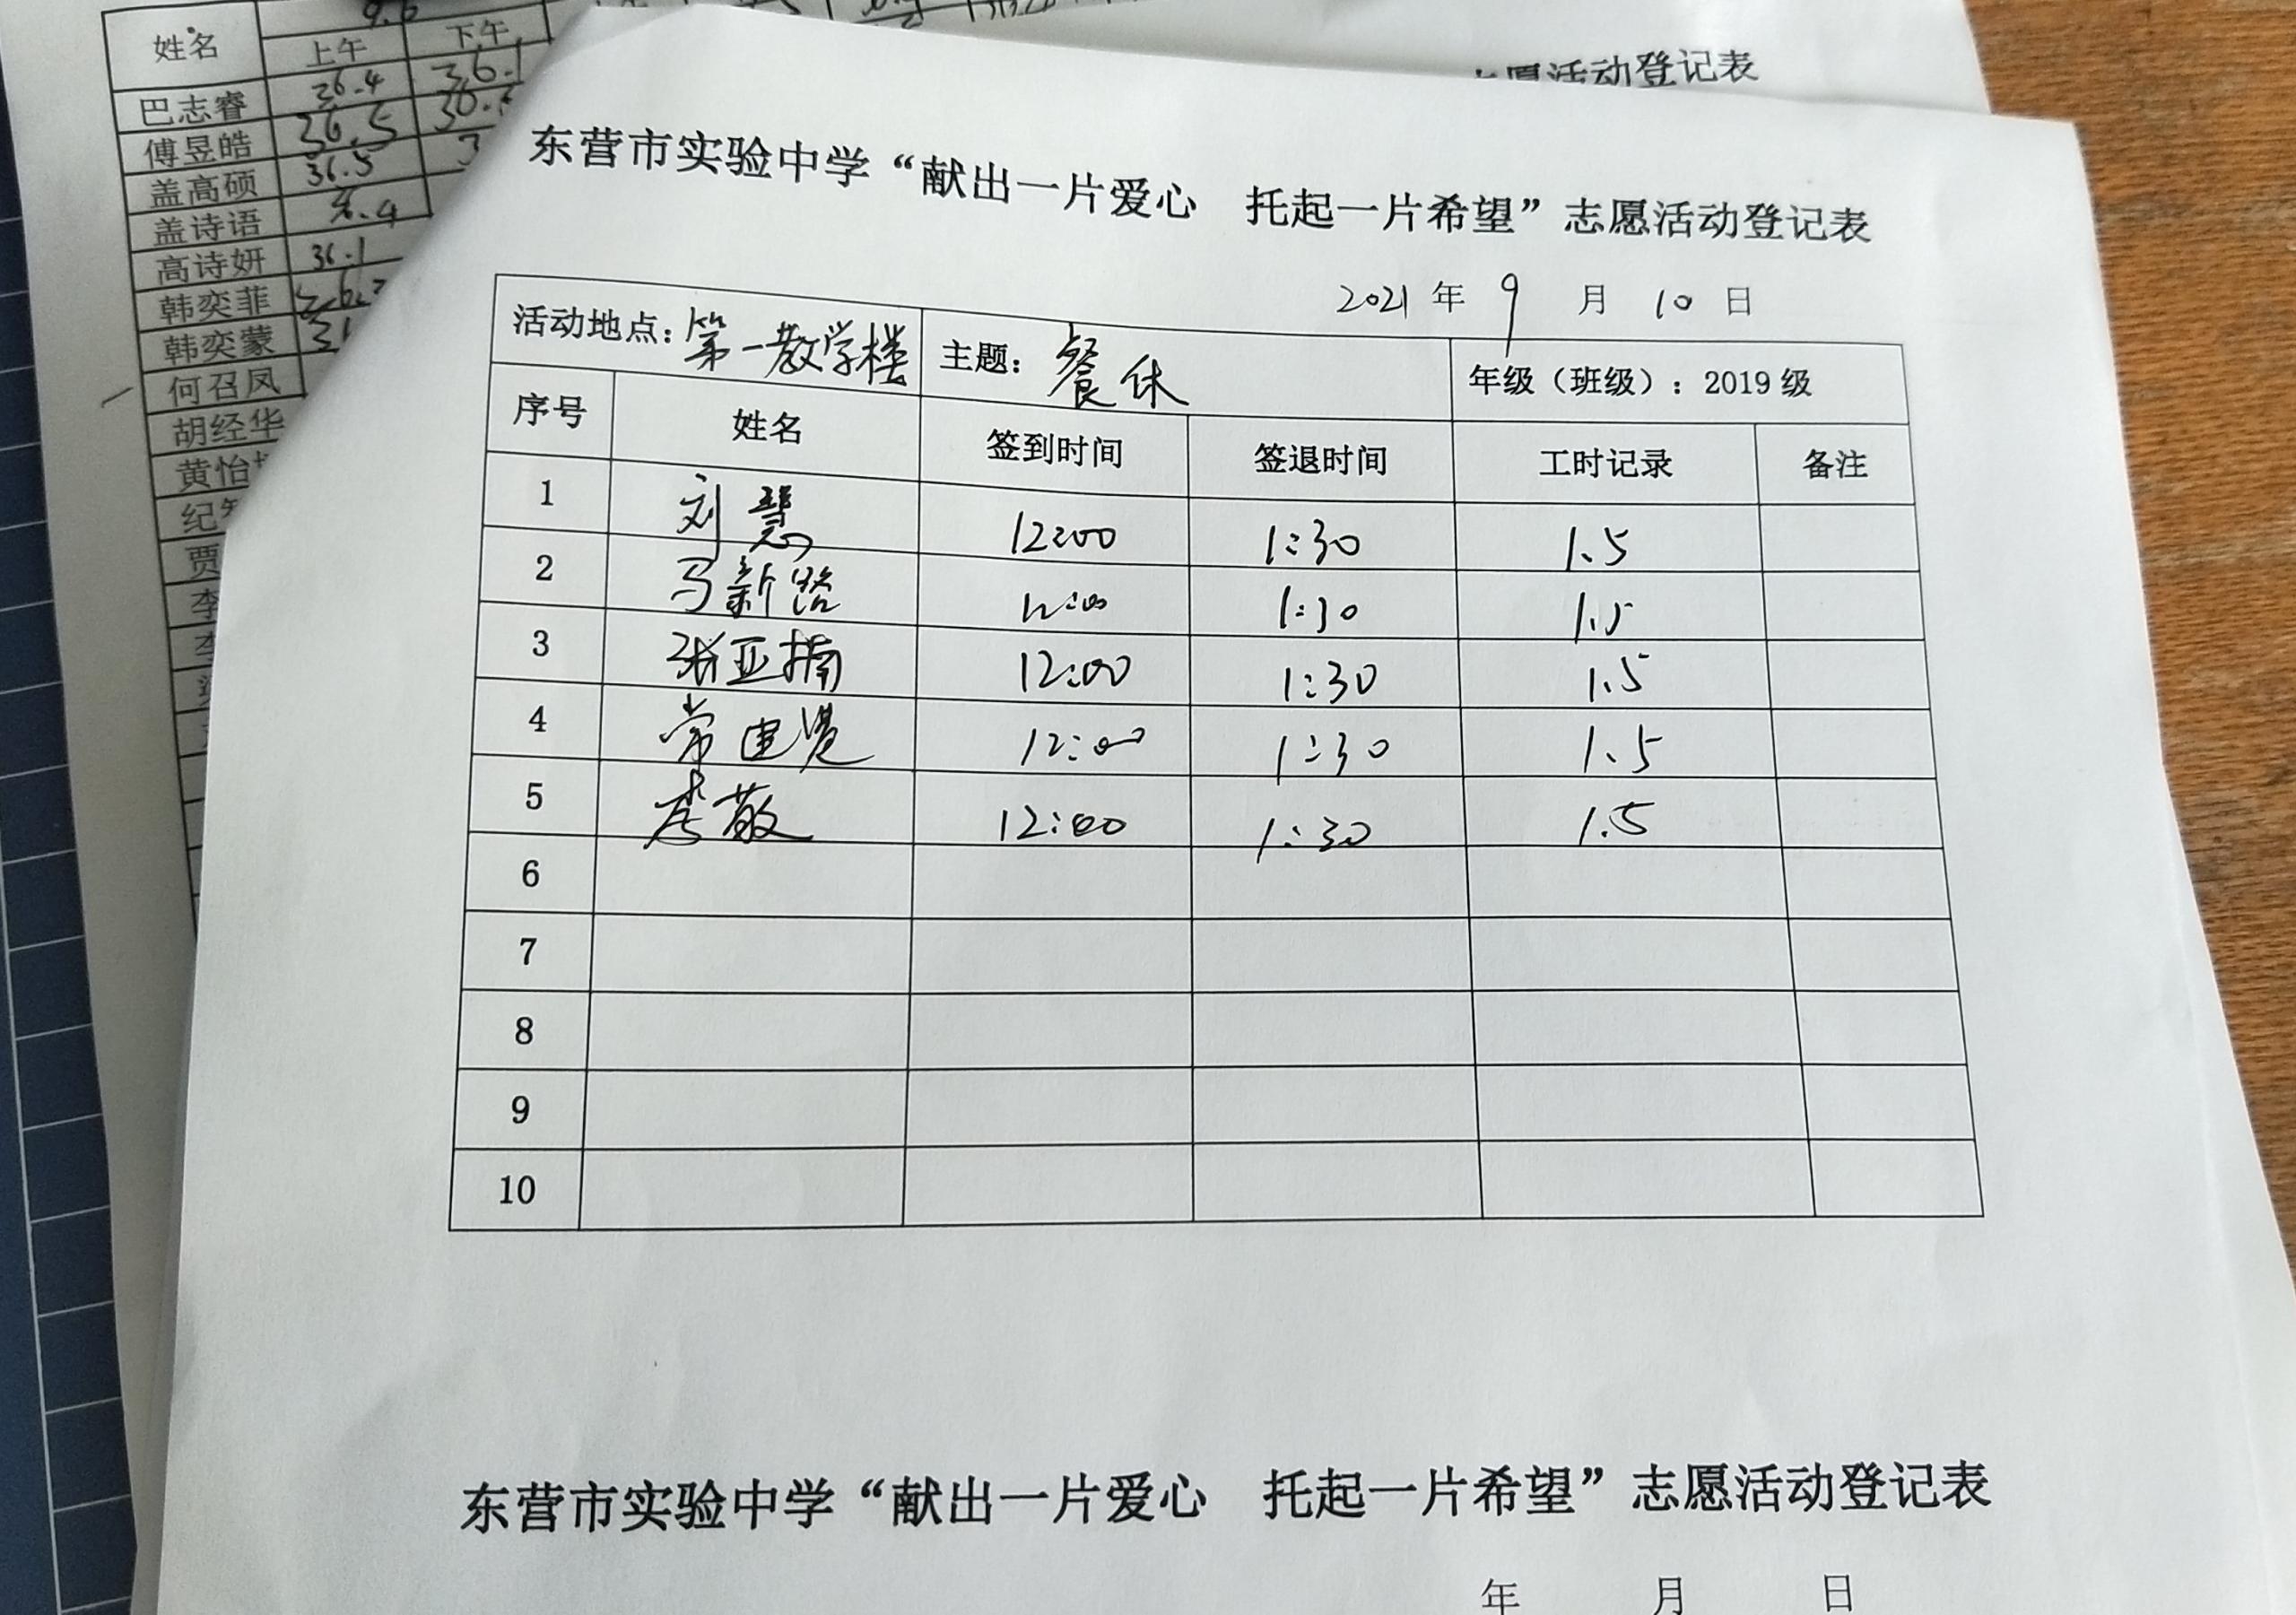 姓名
9.6
上午 下午
巴志睿 36.4 36.1
傅昱皓 36.5
盖高硕 36.5
盖诗语
高诗妍 36.1
韩奕菲
韩奕蒙
何召凤
胡经华
黄怡
贾
李
志愿活动登记表
东营市实验中学“献出一片爱心 托起一片希望”志愿活动登记表
2021 年 9 月 10 日
活动地点：第一教学楼 主题：餐休 年级（班级）：2019 级
序号 姓名 签到时间 签退时间 工时记录 备注
1 刘慧 12:00 1:30 1.5
2 马新路 12:00 1:30 1.5
3 张亚楠 12:00 1:30 1.5
4 常建 12:00 1:30 1.5
5 李敬 12:00 1:30 1.5
6
7
8
9
10
东营市实验中学“献出一片爱心 托起一片希望”志愿活动登记表
年 月 日